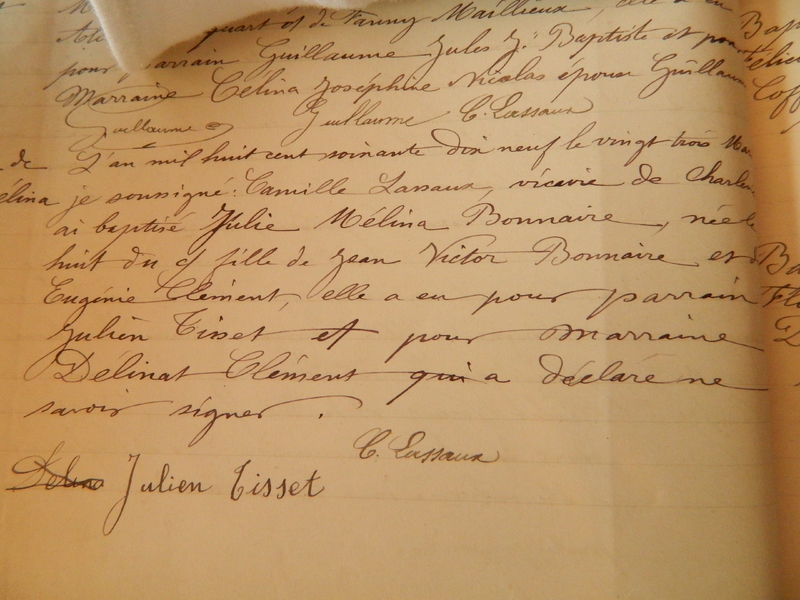 quart et de Fanny Maillieux, elle a eu
pour parrain Guillaume Jules J. Baptiste et pour
Marraine Celina Joséphine Nicolas épouse Guillaume
Guillaume Guillaume C. Lassaux
de L'an mil huit cent soixante dix neuf le vingt trois Mar
elina je soussigné: Camille Lassaux, vicaire de Charle
ai baptisé Julie Mélina Bonnaire, née le
huit du ct fille de Jean Victor Bonnaire et d
Eugénie Clément, elle a eu pour parrain
Julien Tisset et pour Marraine
Délinat Clément qui a déclaré ne
savoir signer.
C. Lassaux
Delina Julien Tisset